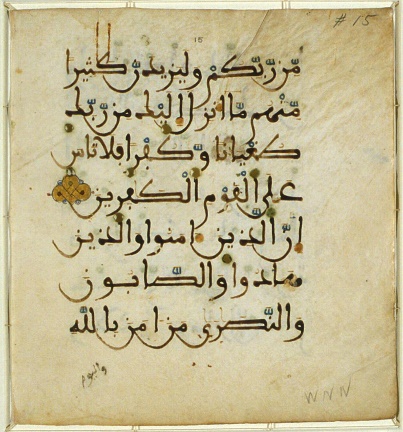 # 15
15
مّن رّبّكم وليزيدنّ كثيرا
مّنهم مّا انزل اليك من رّبّك
طغيانا وّكفرا فلا تاس
على القوم الكفرين
انّ الذين امنوا والذين
هادوا والصابون
والنّصرى من امن بالله
واليوم